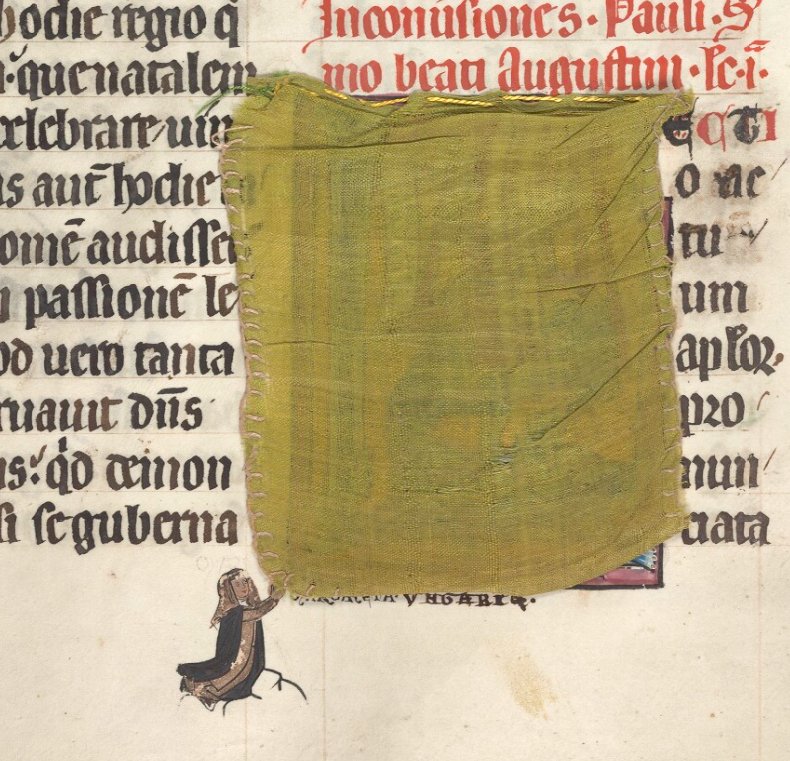 hodie regio q̄
que natalem
celebrare
s aut̄ hodie
omē audisse
passionē le
od uero tanta
ruauit dn̄s
us. qd̓ demon
si se guberna
In conu͛sione s. Pauli. S
mo beati Augustini. lc̄.i.
CTI
o ac
tu
um
aploꝝ.
pro
nun
ciata
VNGARIE.